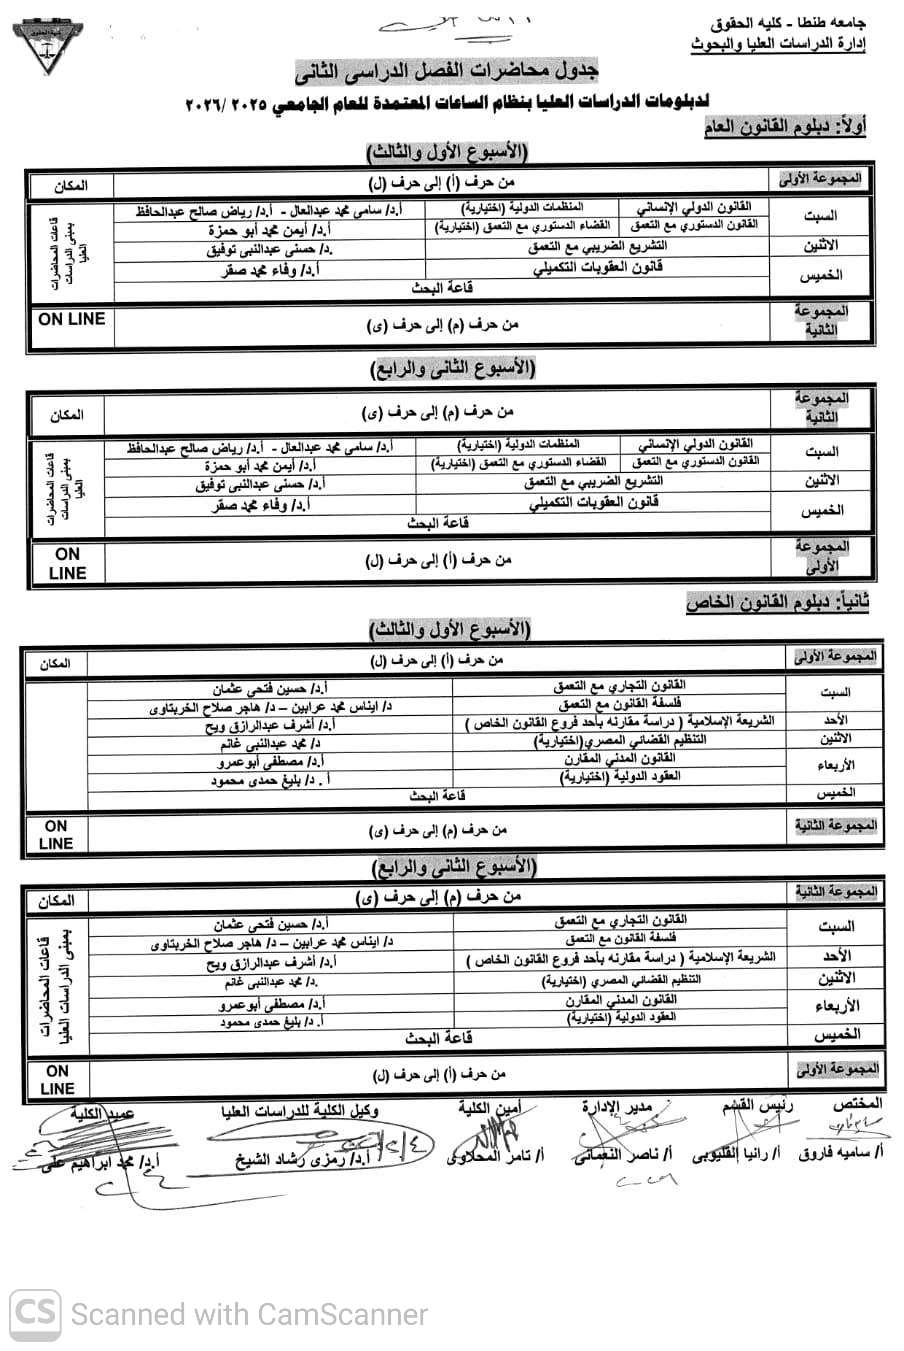 جامعه طنطا - كليه الحقوق
إدارة الدراسات العليا والبحوث
جدول محاضرات الفصل الدراسى الثانى
لدبلومات الدراسات العليا بنظام الساعات المعتمدة للعام الجامعي ٢٠٢٥/ ٢٠٢٦
أولاً: دبلوم القانون العام
(الأسبوع الأول والثالث)
المجموعة الأولى من حرف (أ) إلى حرف (ل) المكان
السبت القانون الدولي الإنساني المنظمات الدولية (اختيارية) أ.د/ سامى محمد عبدالعال - أ.د/ رياض صالح عبدالحافظ قاعات المحاضرات بمبنى الدراسات العليا
القانون الدستوري مع التعمق القضاء الدستوري مع التعمق (اختيارية) أ.د/ أيمن محمد أبو حمزة
الاثنين التشريع الضريبي مع التعمق د./ حسنى عبدالنبى توفيق
الخميس قانون العقوبات التكميلي أ.د/ وفاء محمد صقر
قاعة البحث
المجموعة الثانية من حرف (م) إلى حرف (ى) ON LINE
(الأسبوع الثانى والرابع)
المجموعة الثانية من حرف (م) إلى حرف (ى) المكان
السبت القانون الدولي الإنساني المنظمات الدولية (اختيارية) أ.د/ سامى محمد عبدالعال - أ.د/ رياض صالح عبدالحافظ قاعات المحاضرات بمبنى الدراسات العليا
القانون الدستوري مع التعمق القضاء الدستوري مع التعمق (اختيارية) أ.د/ أيمن محمد أبو حمزة
الاثنين التشريع الضريبي مع التعمق أ.د/ حسنى عبدالنبى توفيق
الخميس قانون العقوبات التكميلي أ.د/ وفاء محمد صقر
قاعة البحث
المجموعة الأولى من حرف (أ) إلى حرف (ل) ON LINE
ثانياً: دبلوم القانون الخاص
(الأسبوع الأول والثالث)
المجموعة الأولى من حرف (أ) إلى حرف (ل) المكان
السبت القانون التجاري مع التعمق أ.د/ حسين فتحى عثمان
فلسفة القانون مع التعمق د/ ايناس محمد عرابين – د/ هاجر صلاح الخربتاوى
الأحد الشريعة الإسلامية ( دراسة مقارنه بأحد فروع القانون الخاص ) أ.د/ أشرف عبدالرازق ويح
الاثنين التنظيم القضائي المصري(اختيارية) د/ محمد عبدالنبى غانم
الأربعاء القانون المدني المقارن أ.د/ مصطفى أبوعمرو
العقود الدولية (اختيارية) أ . د/ بليغ حمدى محمود
الخميس قاعة البحث
المجموعة الثانية من حرف (م) إلى حرف (ى) ON LINE
(الأسبوع الثانى والرابع)
المجموعة الثانية من حرف (م) إلى حرف (ى) المكان
السبت القانون التجاري مع التعمق أ.د/ حسين فتحى عثمان قاعات المحاضرات بمبنى الدراسات العليا
فلسفة القانون مع التعمق د/ ايناس محمد عرابين – د/ هاجر صلاح الخربتاوى
الأحد الشريعة الإسلامية ( دراسة مقارنه بأحد فروع القانون الخاص ) أ.د/ أشرف عبدالرازق ويح
الاثنين التنظيم القضائي المصري (اختيارية) د/ محمد عبدالنبى غانم
الأربعاء القانون المدني المقارن أ.د/ مصطفى أبوعمرو
العقود الدولية (اختيارية) أ. د/ بليغ حمدى محمود
الخميس قاعة البحث
المجموعة الأولى من حرف (أ) إلى حرف (ل) ON LINE
المختص رئيس القسم مدير الإدارة أمين الكلية وكيل الكلية للدراسات العليا عميد الكلية
أ/ ساميه فاروق أ/ رانيا القليوبى أ/ ناصر النعمانى أ/ تامر المحلاوى أ.د/ رمزى رشاد الشيخ أ.د/ محمد ابراهيم على
CS Scanned with CamScanner